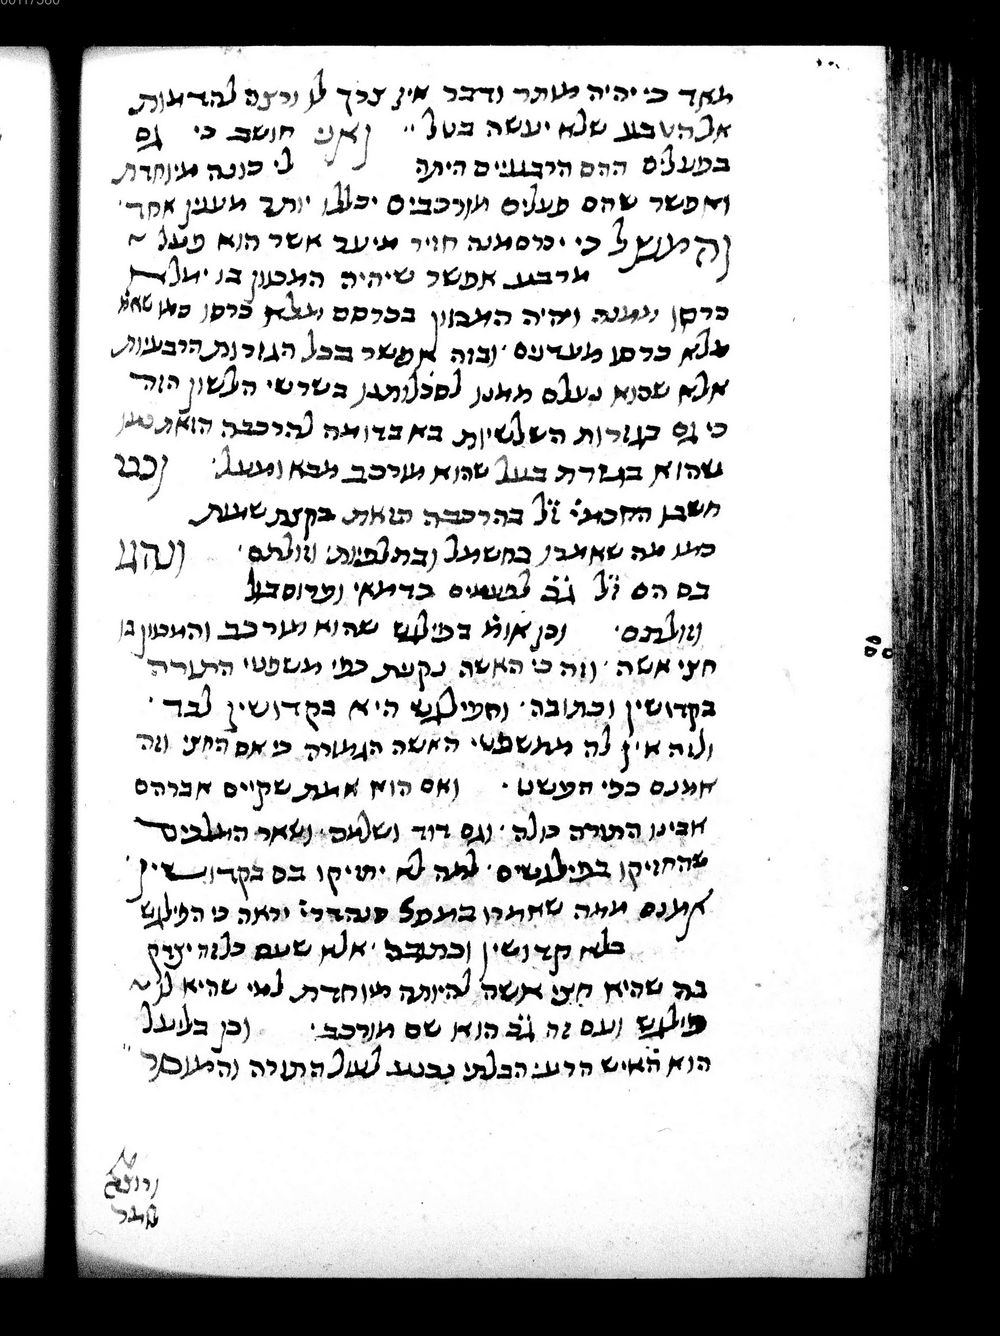 מאד כי יהיה מותר ודבר אין צרך לו ורצה להדמות
אל הטבע שלא יעשה בטל ואני חושב כי גם
בפעלים ההם הרבעיים היתה לי כונה מיוחדת
ואפשר שהם פעלים מורכבים יכללו יותר מענין אחד
והמשל כי יכרסמנה חזיר מיער אשר הוא פעל
מרבע אפשר שיהיה המכוון בו ימלא
כרסו ממנה ויהיה המכוון בכרסם מלא כרסו כמו שאמ'
מלא כרסו מעדנים ובזה אפשר בכל הגזרות הרבעיות
אלא שהוא נעלם ממנו לסכלותנו בשרשי הלשון הזה
כי גם בגזרות השלשיות בא בדומה להרכבה הזאת כמו
שהוא בגזרת בעל שהוא מורכב מבא ומעל וכבר
חשבו החכמי' ז"ל בהרכבה הזאת בקצת שמות
כמו מה שאמרו בחשמל ובתלפיות וזולתם ונהגו
בם הם ז"ל ג"כ לפעמים בדמאי ופרוסבול
וזולתם וכן אומ' בפילגש שהוא מורכב והמכוון בו
חצי אשה וזה כי האשה נקנת כפי משפטי התורה
בקדושין וכתובה והפילגש היא בקדושין לבד
ולזה אין לה ממשפטי האשה הגמורה כי אם החצי וזה
אמנם כפי הפשט ואם הוא אמת שקיים אברהם
אבינו התורה כולה וגם דוד ושלמה ושאר המלכים
שהחזיקו בפילגשים למה לא יחזיקו בם בקדושין
אמנם ממה שאמרו במסכ' סנהדרי' יראה כי הפילגש
בלא קדושין וכתובה אלא שעם כל זה יצדק
בה שהיא חצי אשה להיותה מיוחדת למי שהיא לו
פילגש ועם זה ג"כ הוא שם מורכב וכן בליעל
הוא האיש הרע הבלתי נכנע לעול התורה והמוסר